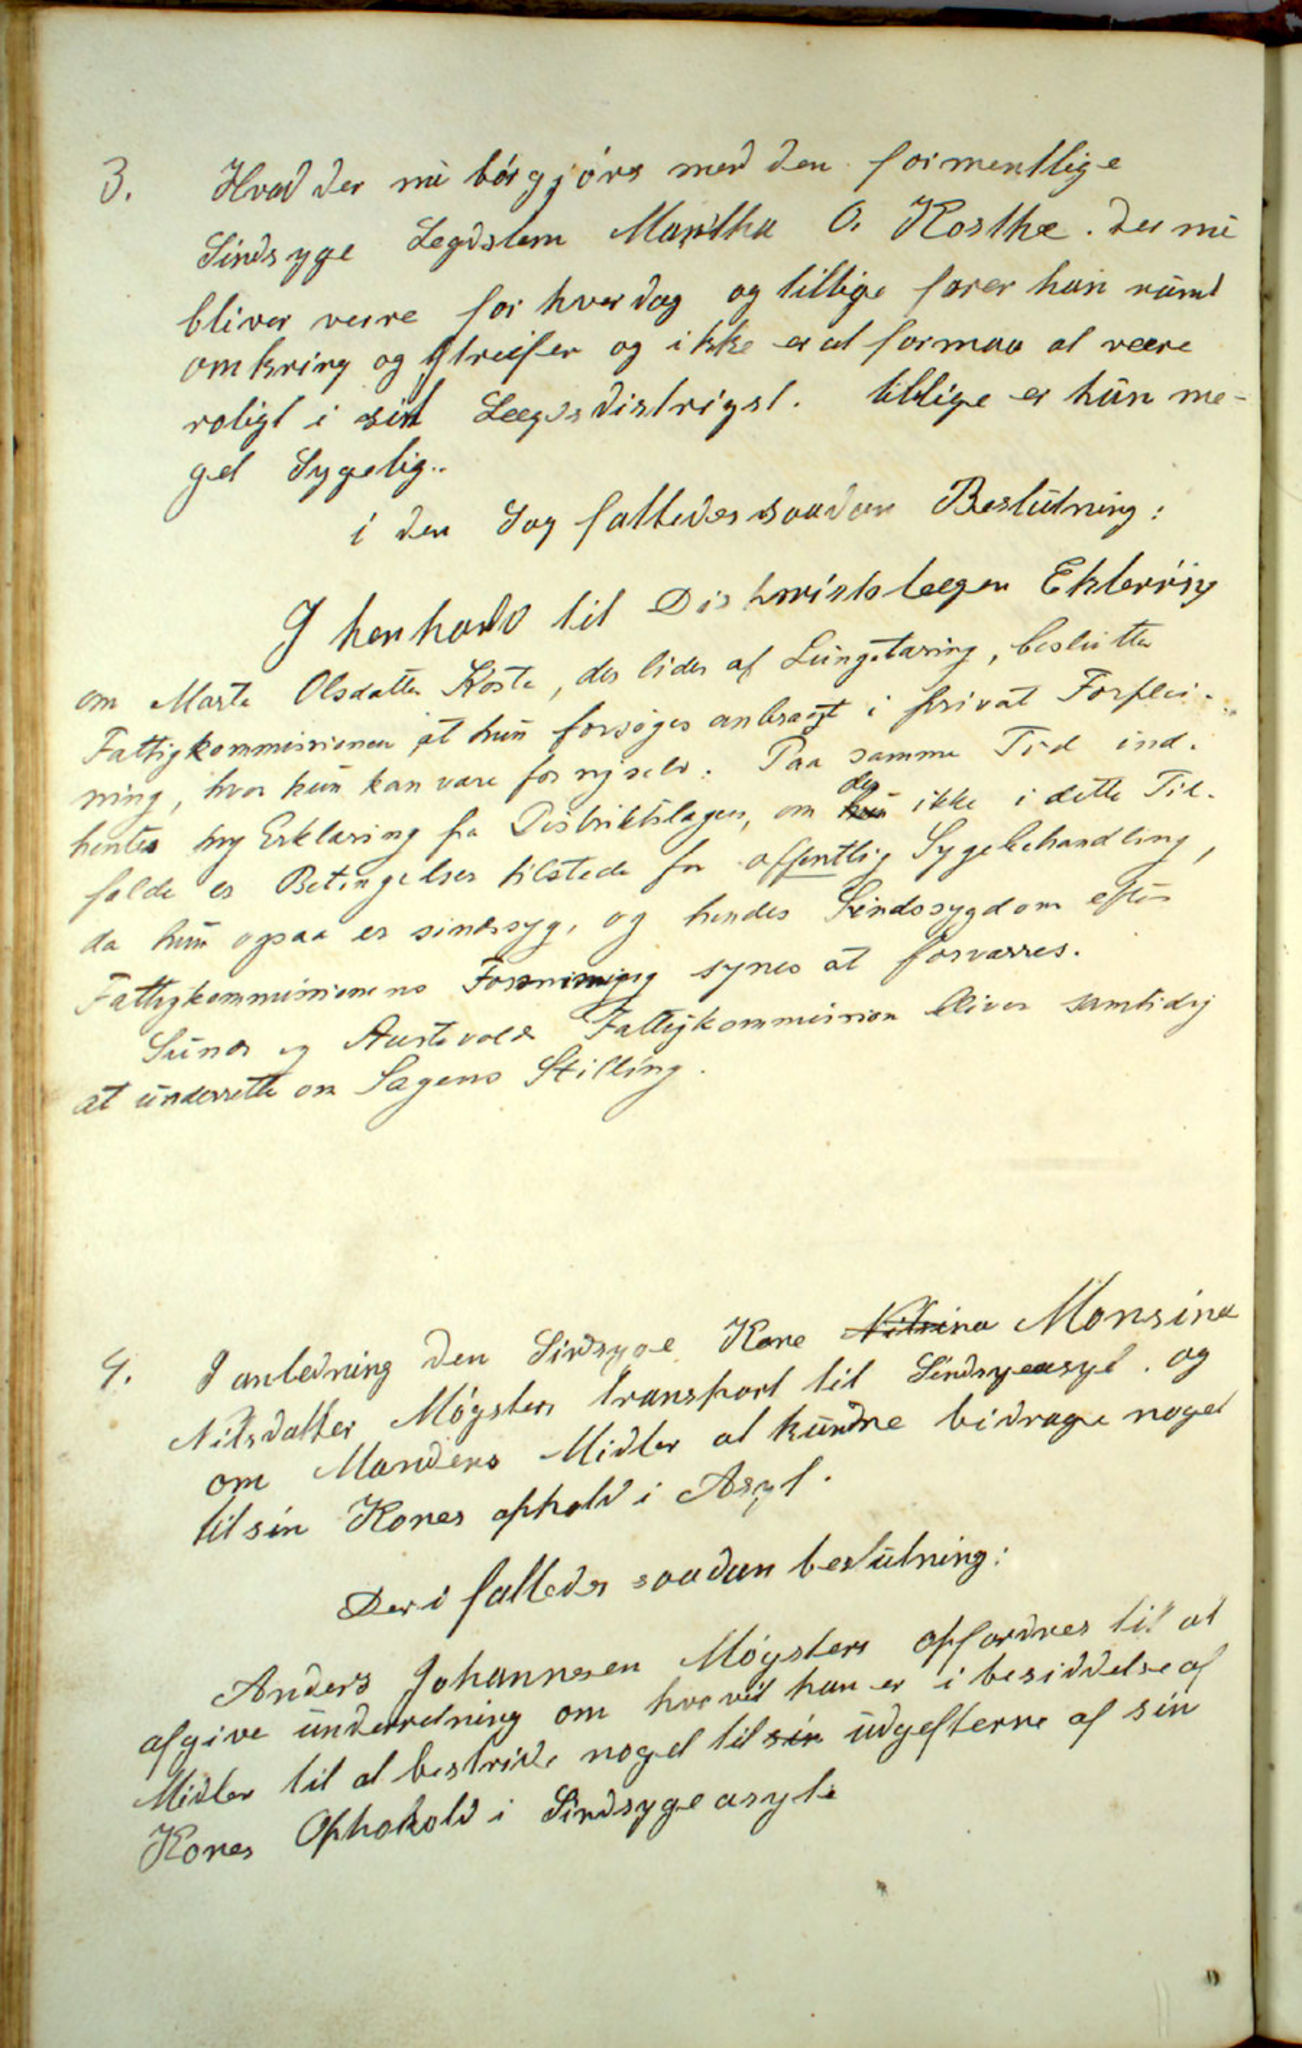 3. Hvad der nu bør gjøres med den formentlige
Sindsyge Legdslem Martha O. Kosthe. der nu
bliver verre for hver dag og tillige farer hun rundt
omkring og Streifer og ikke er at formaa at være
roligt i sit Lægdsdistrigt. tillige er hun me-
get Sygelig..
i den Sag fattedes saadan Beslutning:
I henhold til Distriktslægen Erklæring
om Marta Olsdatter Koste, der lider af Lungetæring, beslutter
Fattigkommissionen at hun forsøges anbragt i privat Forplei-
ning, hvor hun kan være for sig selv. Paa samme Tid ind-
hentes ny Erklæring fra Distriktslægen, om hun der ikke i dette Til-
fælde er Betingelser tilstede for offentlig Sygebehandling,
da hun ogsaa er sindssyg, og hendes Sindssygdom efter
Fattigkommissionens Formening synes at forværres.
Sunds og Austevolds Fattigkommission bliver samtidig
at underrette om Sagens Stilling.
4. I anledning den Sindsyge Kone Nilsina Monsina
Nilsdatter Møgsters transport til Sindsygeasyl. og
om Mandens Midler at kundne bidrage noget
til sin Kones ophold i Asyl.
Deri fattedes saadan beslutning:
Anders Johannesen Møgsters opfordres til at
afgive underretning om hvorvit han er i besiddelse af
Midler til at bestride noget til sin udgifterne af sin
Kones Ophohold i Sindsygeasyl.